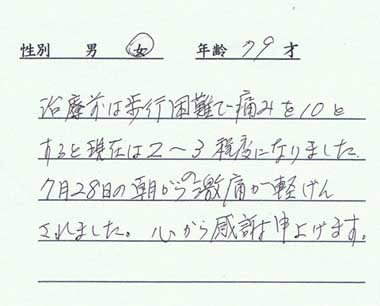 性別 男 女 年齢 79才
治療前は歩行困難で痛みを10と
すると現在は2～3程度になりました。
7月28日の朝からの激痛が軽げん
されました。心から感謝申上げます。